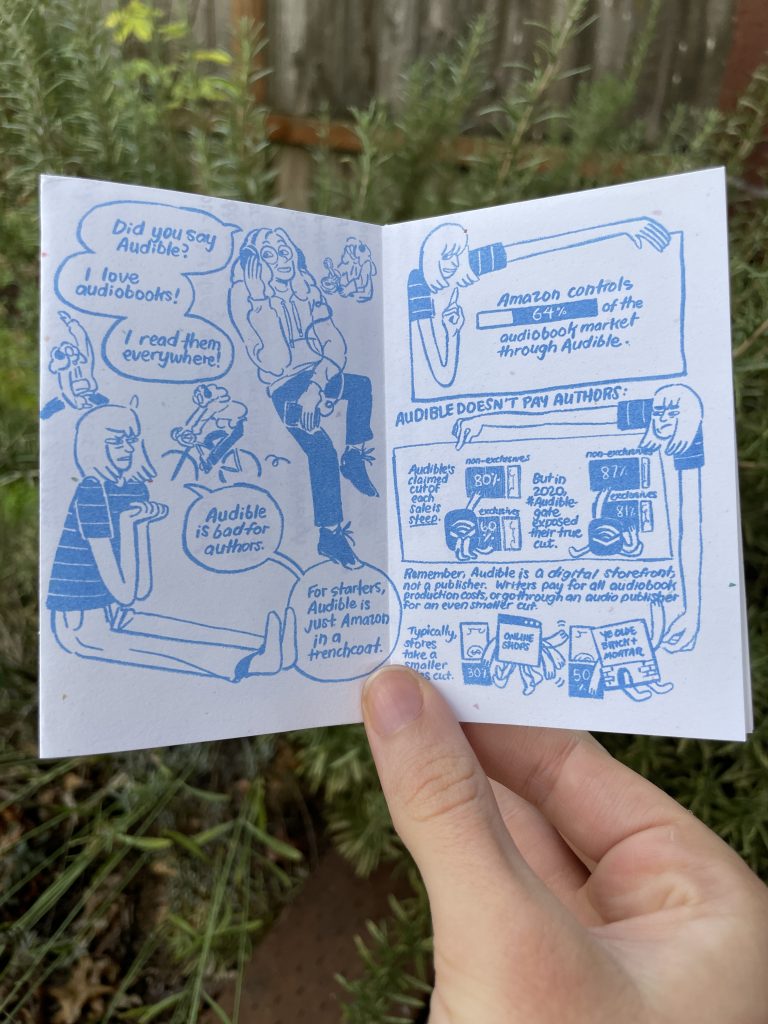 Did you say
Audible?
I love
audiobooks!
I read them
everywhere!
Audible
is bad for
authors.
For starters,
Audible is
just Amazon
in a
trenchcoat.
Amazon controls
64% of the
audiobook market
through Audible.
AUDIBLE DOESN'T PAY AUTHORS:
Audible's
claimed
cut of
each
sale is
steep.
non-exclusives
80%
exclusives
60
%
But in
2020,
#Audible-
gate
exposed
their true
cut.
non-exclusives
87%
exclusives
81%
Remember, Audible is a digital storefront,
not a publisher. Writers pay for all audiobook
production costs, or go through an audio publisher
for an even smaller cut.
Typically,
stores
take a
smaller
cut.
30%
ONLINE
SHOPS
50
%
YE OLDE
BRICK +
MORTAR